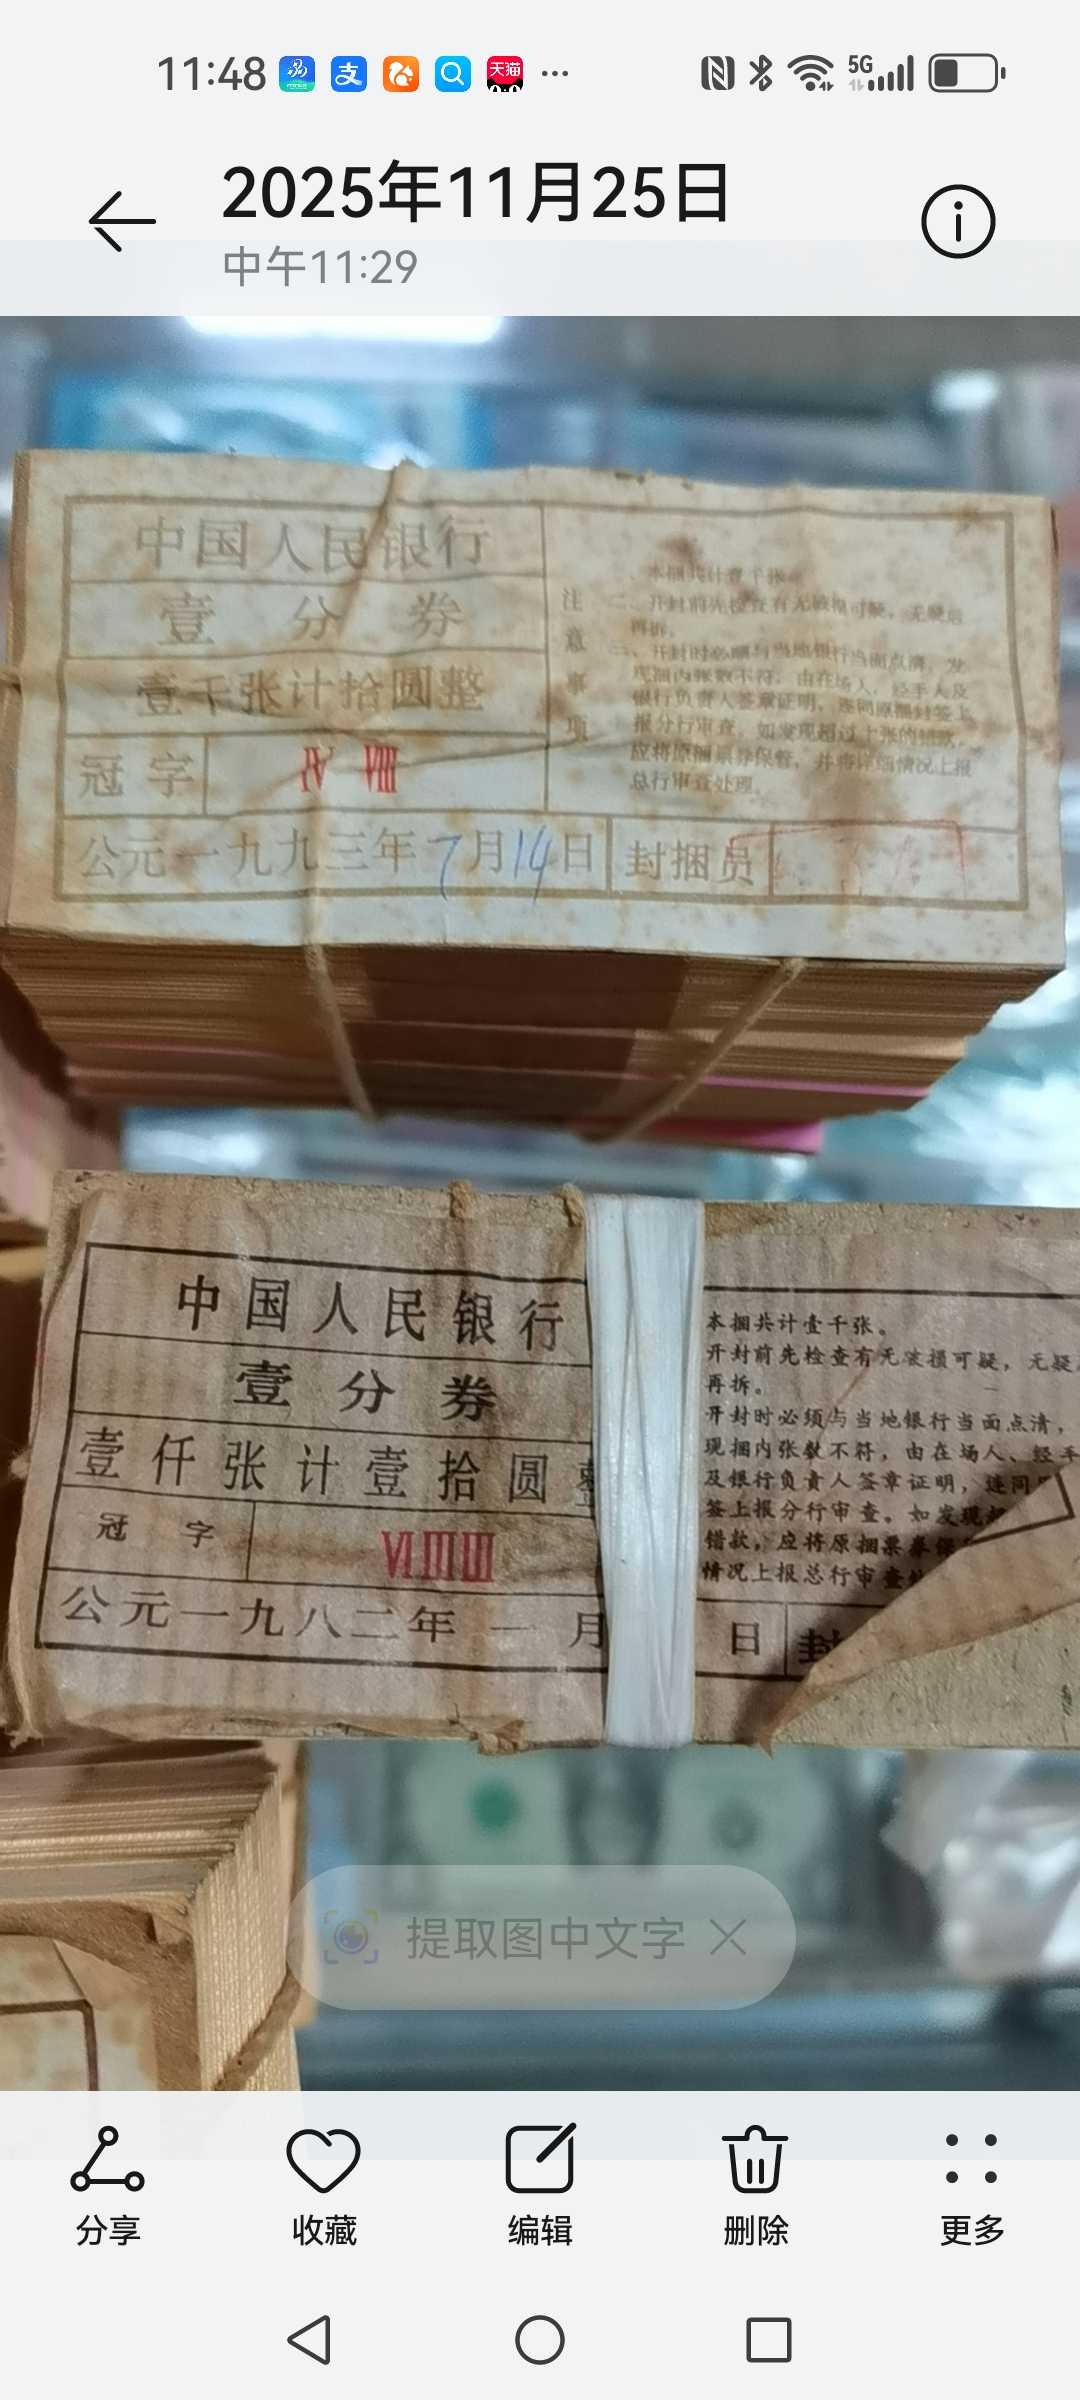 11:48
天猫
5G
2025年11月25日
中午11:29
中国人民银行
壹分券
壹千张计拾圆整
冠字 Ⅳ Ⅷ
公元一九九三年7月14日 封捆员
注意事项
一、本捆共计壹千张。
二、开封前先检查有无破损可疑，无疑后
再拆。
三、开封时必须与当地银行当面点清，发
现捆内张数不符，由在场人、经手人及
银行负责人签章证明，连同原捆封签上
报分行审查，如发现超过十张的错款，
应将原捆票券保管，并将详细情况上报
总行审查处理。
中国人民银行
壹分券
壹仟张计壹拾圆整
冠字 ⅥⅢⅢ
公元一九八二年一月 日 封
本捆共计壹千张。
开封前先检查有无破损可疑，无疑
再拆。
开封时必须与当地银行当面点清，
现捆内张数不符，由在场人、经手
及银行负责人签章证明，连同
签上报分行审查。如发现
错款，应将原捆票券保
情况上报总行审查
提取图中文字
分享
收藏
编辑
删除
更多